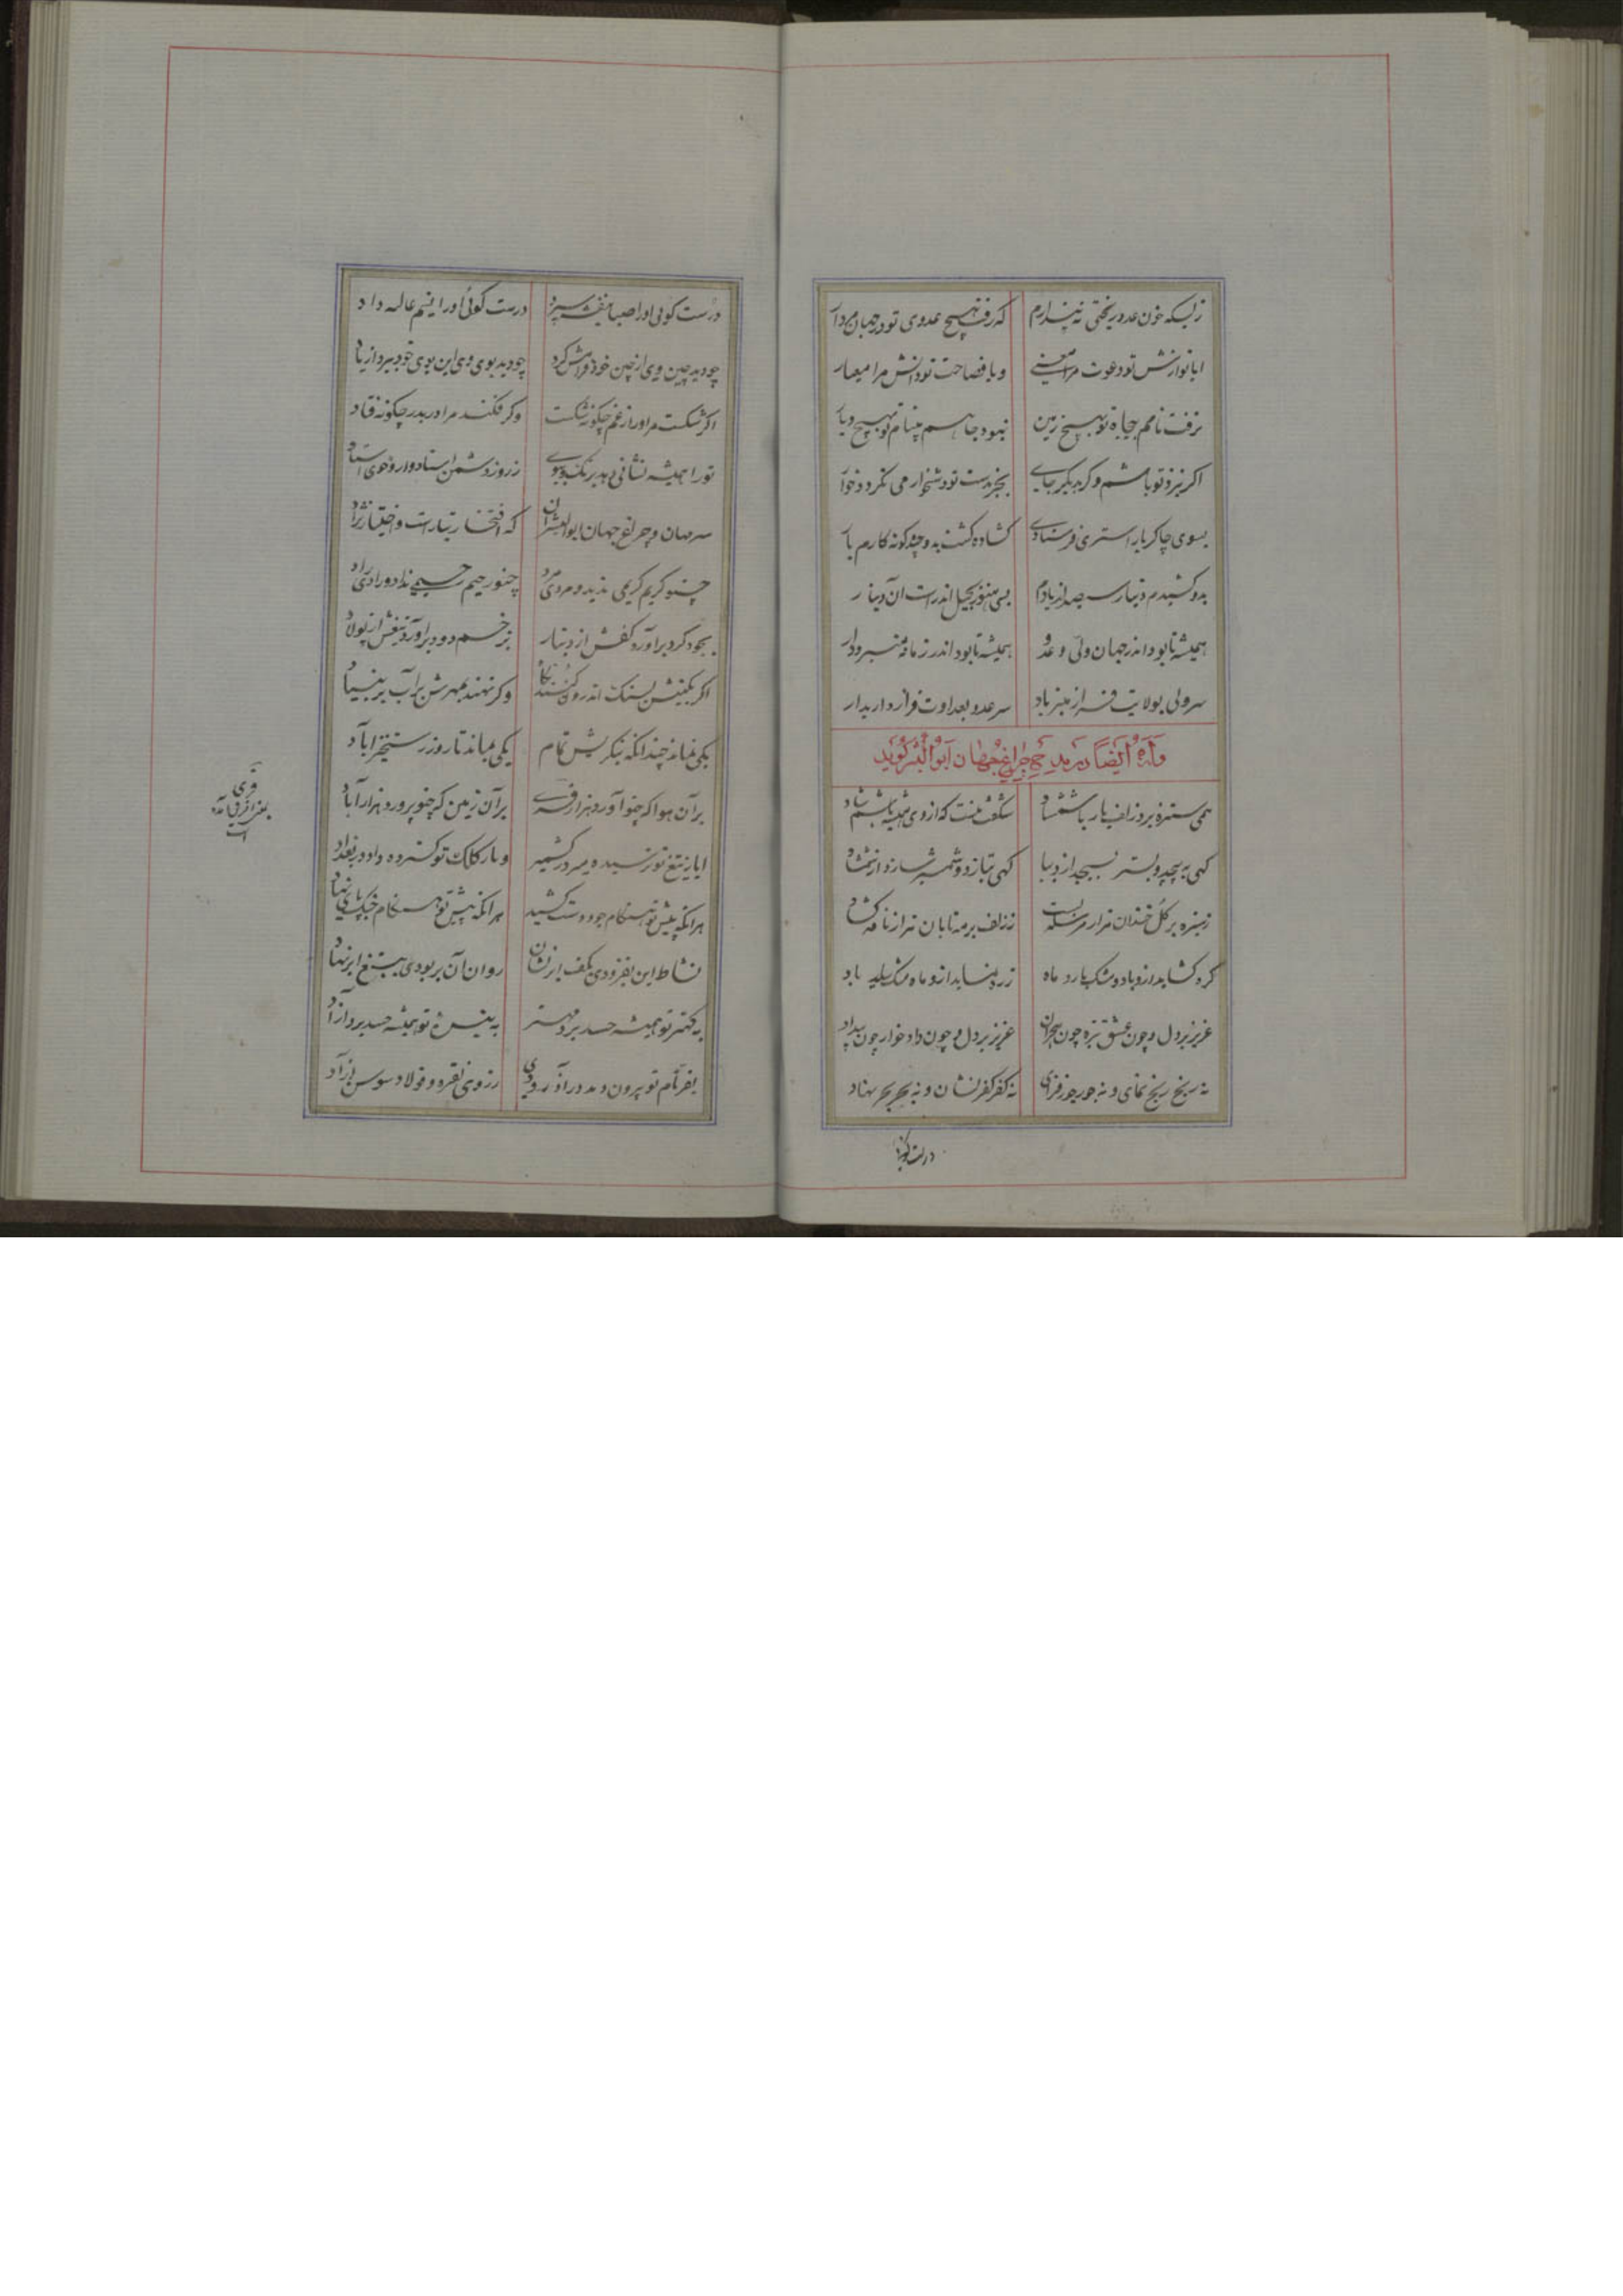 زبسکه خون عدو ریختی نه پندارم که رفت هیچ عدوی تو در جهان مردار
ابا نوازش تو دعوت مرا معنی و با فصاحت تو دانش مرا معیار
نرفت نامم بیجاه تو بهیچ زمین نبود جاهم بینام تو بهیچ دیار
اگر نزد تو باشم و گر بدیگر جای بجز بدست تو دشخوار می نگردد خوار
بسوی چاکر بار استری فرستادی گشاده گشت بدو چندگونه کارم بار
بدو کشیدم دینار سیصد از بادم بسی هنوز بجیل اندر است آن دینار
همیشه تا بود اندر جهان ولی و عدو همیشه تا بود اندر زمانه منبر و دار
سر ولی بولایت فراز منبر باد سر عدو بعداوت فراز دار بدار
وله ایضاً در مدح چراغ جهان ابوالبشر گوید
همی ستیزه برد زلف یار با شمشاد شگفت نیست که از وی همیشه باشم شاد
گهی بپیچد و بستر بسیجد از دیبا گهی بتازد و شمشیر سازد از شمشاد
زسبزه بر گل خندان هزار سلسله بست ززلف بر مه تابان هزار نافه گشاد
گره گشاید ازو باد و مشک بارد ماه زره نماید ازو ماه و مشک بلید باد
عزیز بر دل و چون عشق تیره چون هجران عزیز بر دل و چون داد خوار چون بیداد
نه رنج رنج نمای و نه جور جور فزای نه کفر کفر نشان و نه بحر بحر نهاد
درست گوئی
درست گوئی او را صبا بنفشه سپرد درست گوئی او را نسیم عالیه داد
چو دید چین وی از چین خود فرامش کرد چو دید بوی وی این بوی خود ببرد از یاد
اگر شکست مرا او را زغم چگونه شکست و گر فکند مرا او ربدر چگونه فتاد
تو را همیشه نشانی دهد برنگ و ببوی زروز دشمن استاد و از خوی استاد
سر مهان و چراغ جهان ابوالبشر آن که افتخار تبارست و اختیار نژاد
چنو کریم کریمی ندید و مردی مرد چنو رحیم رحیمی نزاد و رادی راد
بجود گرد برآورد کفش از دینار بزخم دود برآورد تیغش از پولاد
اگر بکینش بسنگ اندرون کنند نگار و گر نهند بمهرش بر آب بر بنیاد
یکی نماند چندانکه بنگریش تمام یکی بماند تا روز رستخیز آباد
بر آن هوا که چنو آورد هزار فری بر آن زمین که چنو پرورد هزار آباد
ایا ز تیغ تو ترسیده میر در کشمیر و باز کلک تو گسترده داد در بغداد
هر آنکه پیش تو هنگام جود دست کشید هر آنکه پیش تو هنگام جنگ پای نهاد
نشاط این بفزودی بکف ابر نشان روان آن بربودی بتیغ ابر نهاد
به کهتر تو همیشه حسد برد مهتر به بنده تو همیشه حسد برد آزاد
بفر نام تو بیرون دمد در آذر و دی ز روی نقره و فولاد سوسن آزاد
فری
بمعنی آفرین آمده
است